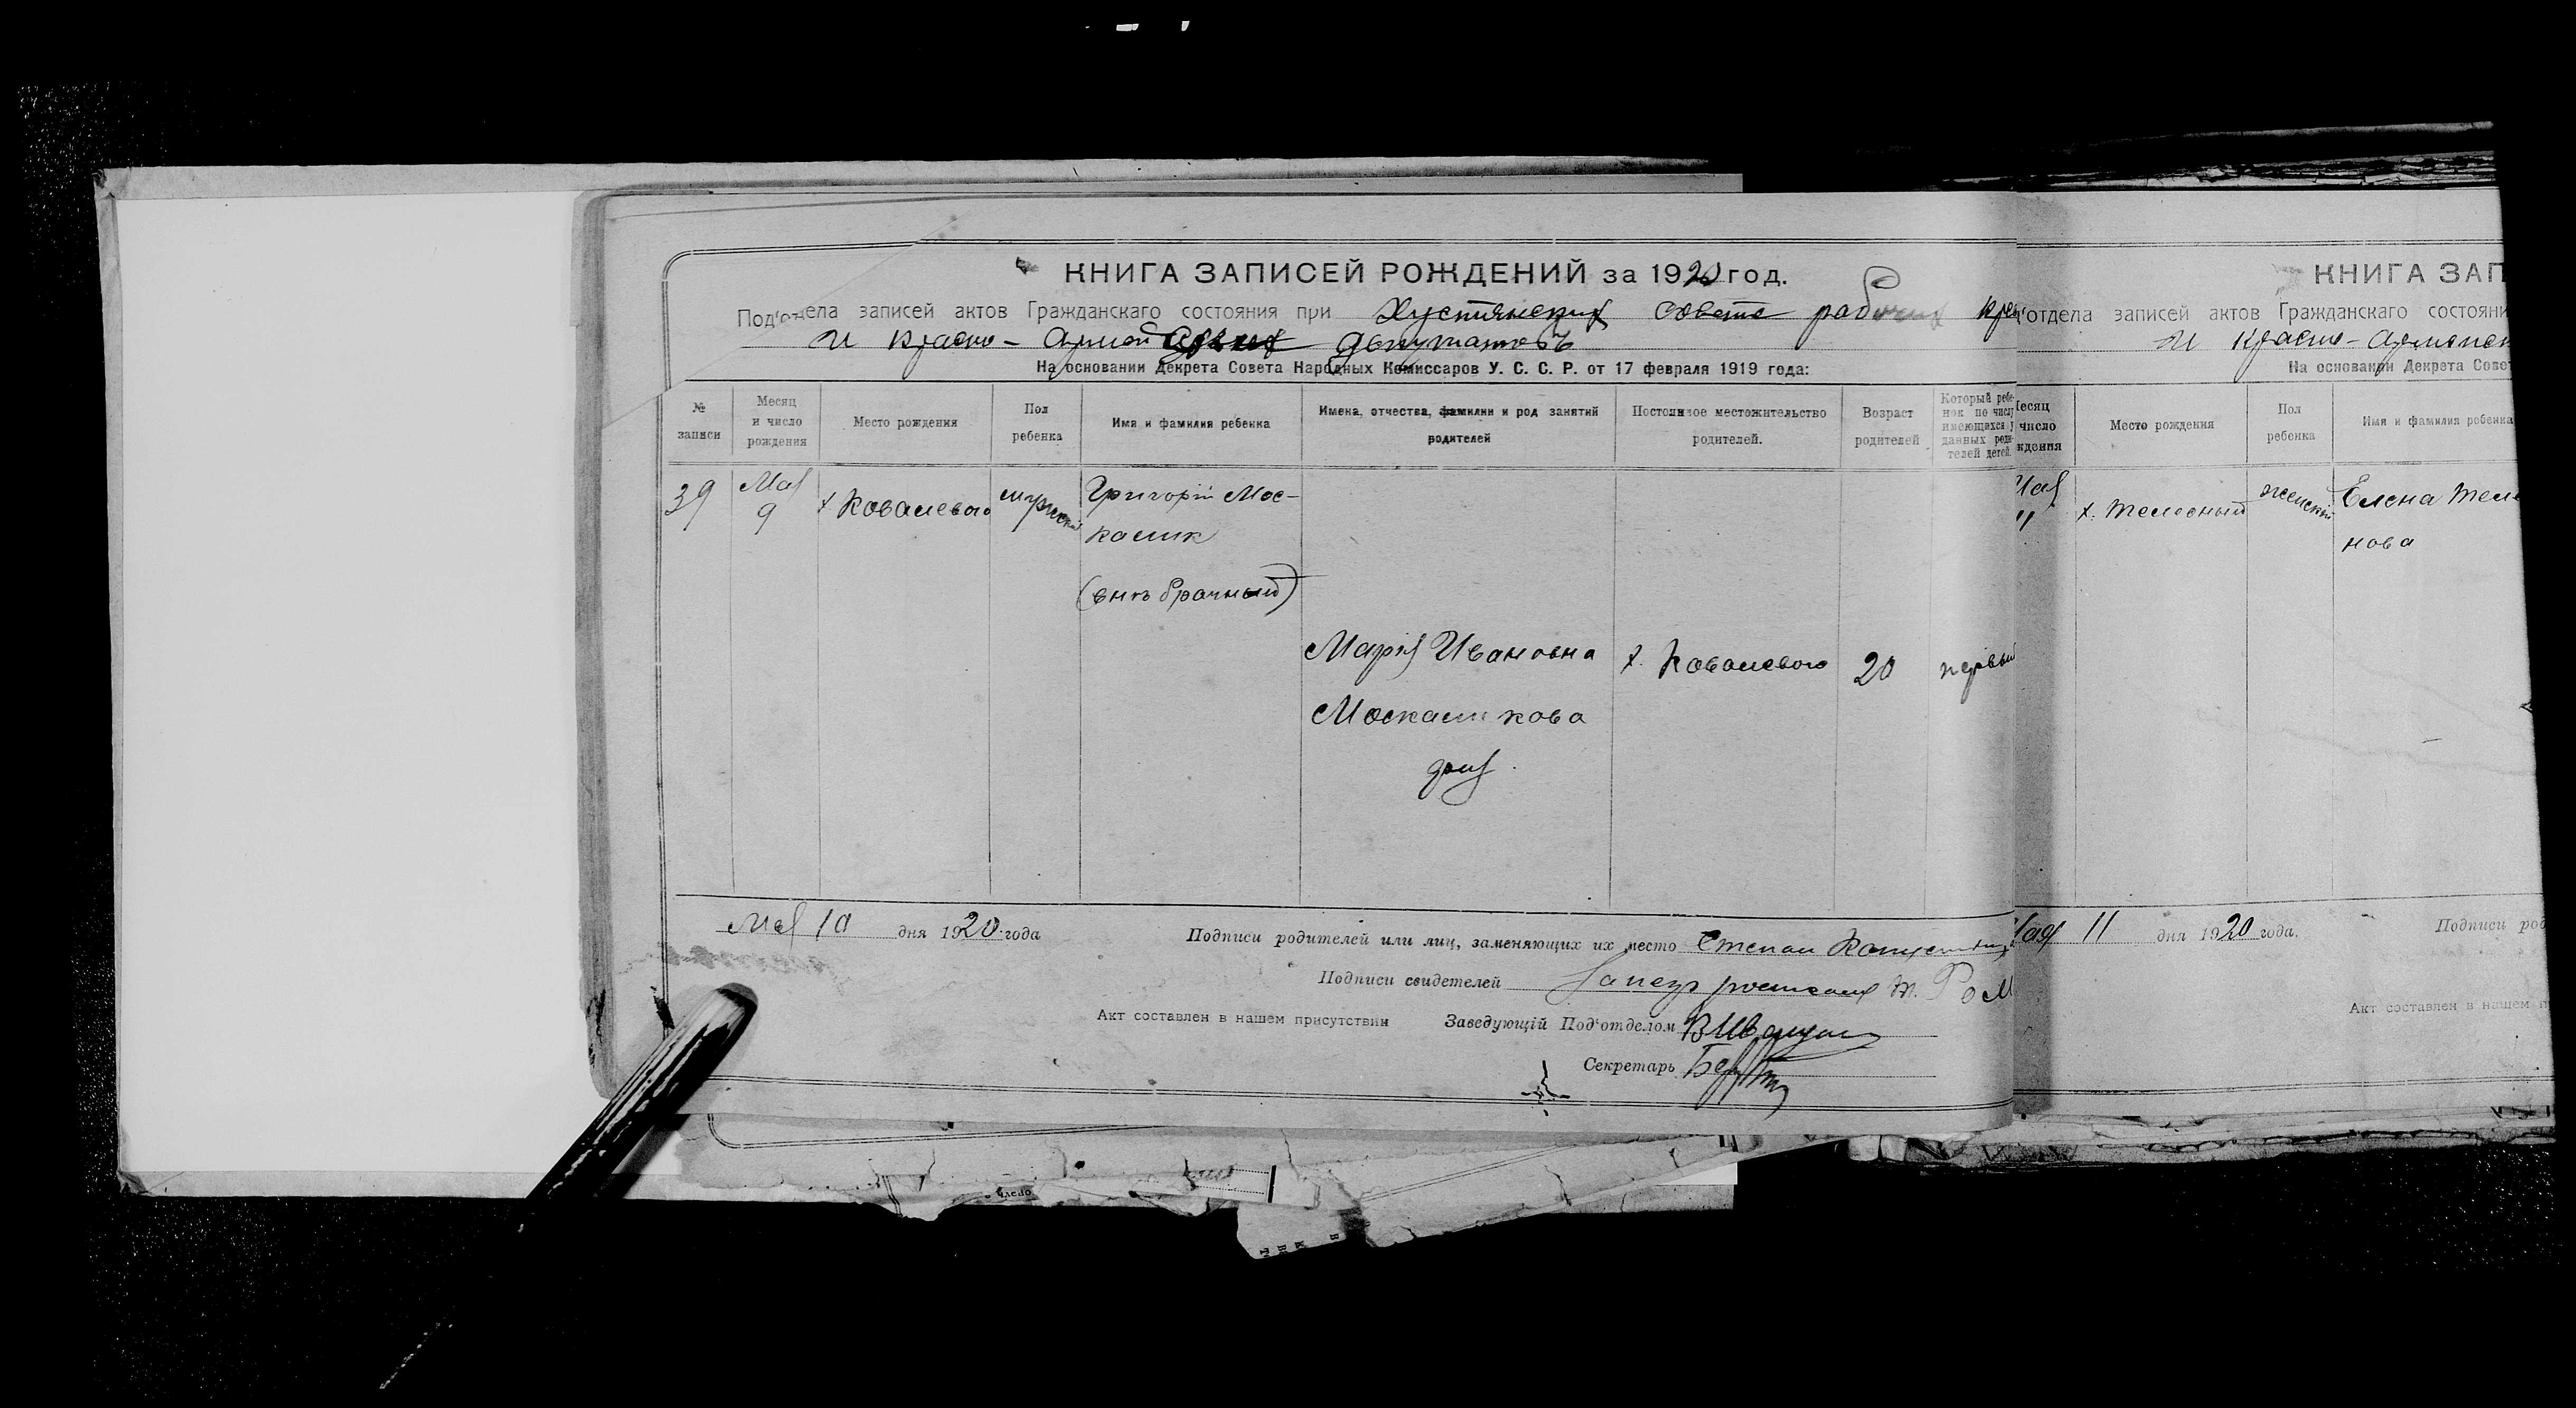 КНИГА ЗАПИСЕЙ РОЖДЕНИЙ за 1920 год.
Под'отдела записей актов Гражданскаго состояния при Хустянских совета рабочих
и красно-армей депутатовъ
На основании Декрета Совета Народных Комиссаров У. С. С. Р. от 17 февраля 1919 года:
№ записи
Месяц и число рождения
Место рождения
Пол ребенка
Имя и фамилия ребенка
Имена, отчества, фамилии и род занятий родителей
Постоянное местожительство родителей.
Возраст родителей
Который ребенок по числу имеющихся у данных родителей детей.
39
Мая 9
х Ковалевого
мужской
Григорій Мос-
калик
(внѣбрачный)
Марія Ивановна
Москаликова
х. Ковалевого
20
первый
Мая 10 дня 1920 года
Подписи родителей или лиц, заменяющих их место Степан
Подписи свидетелей
Акт составлен в нашем присутствии Заведующій Под'отделом
Секретарь
КНИГА ЗАП
отдела записей актов Гражданскаго состояни
и красно-армейск
На основании Декрета Сове
есяц
число
ждения
Место рождения
Пол ребенка
Имя и фамилия ребенка
11
х. Телесный
женскій
Елена Теле
нова
11 дня 1920 года.
Подписи род
Акт составлен в нашем п